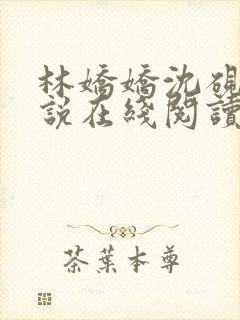 林嬌嬌沈硯
說在綫閱讀
茶葉本尊